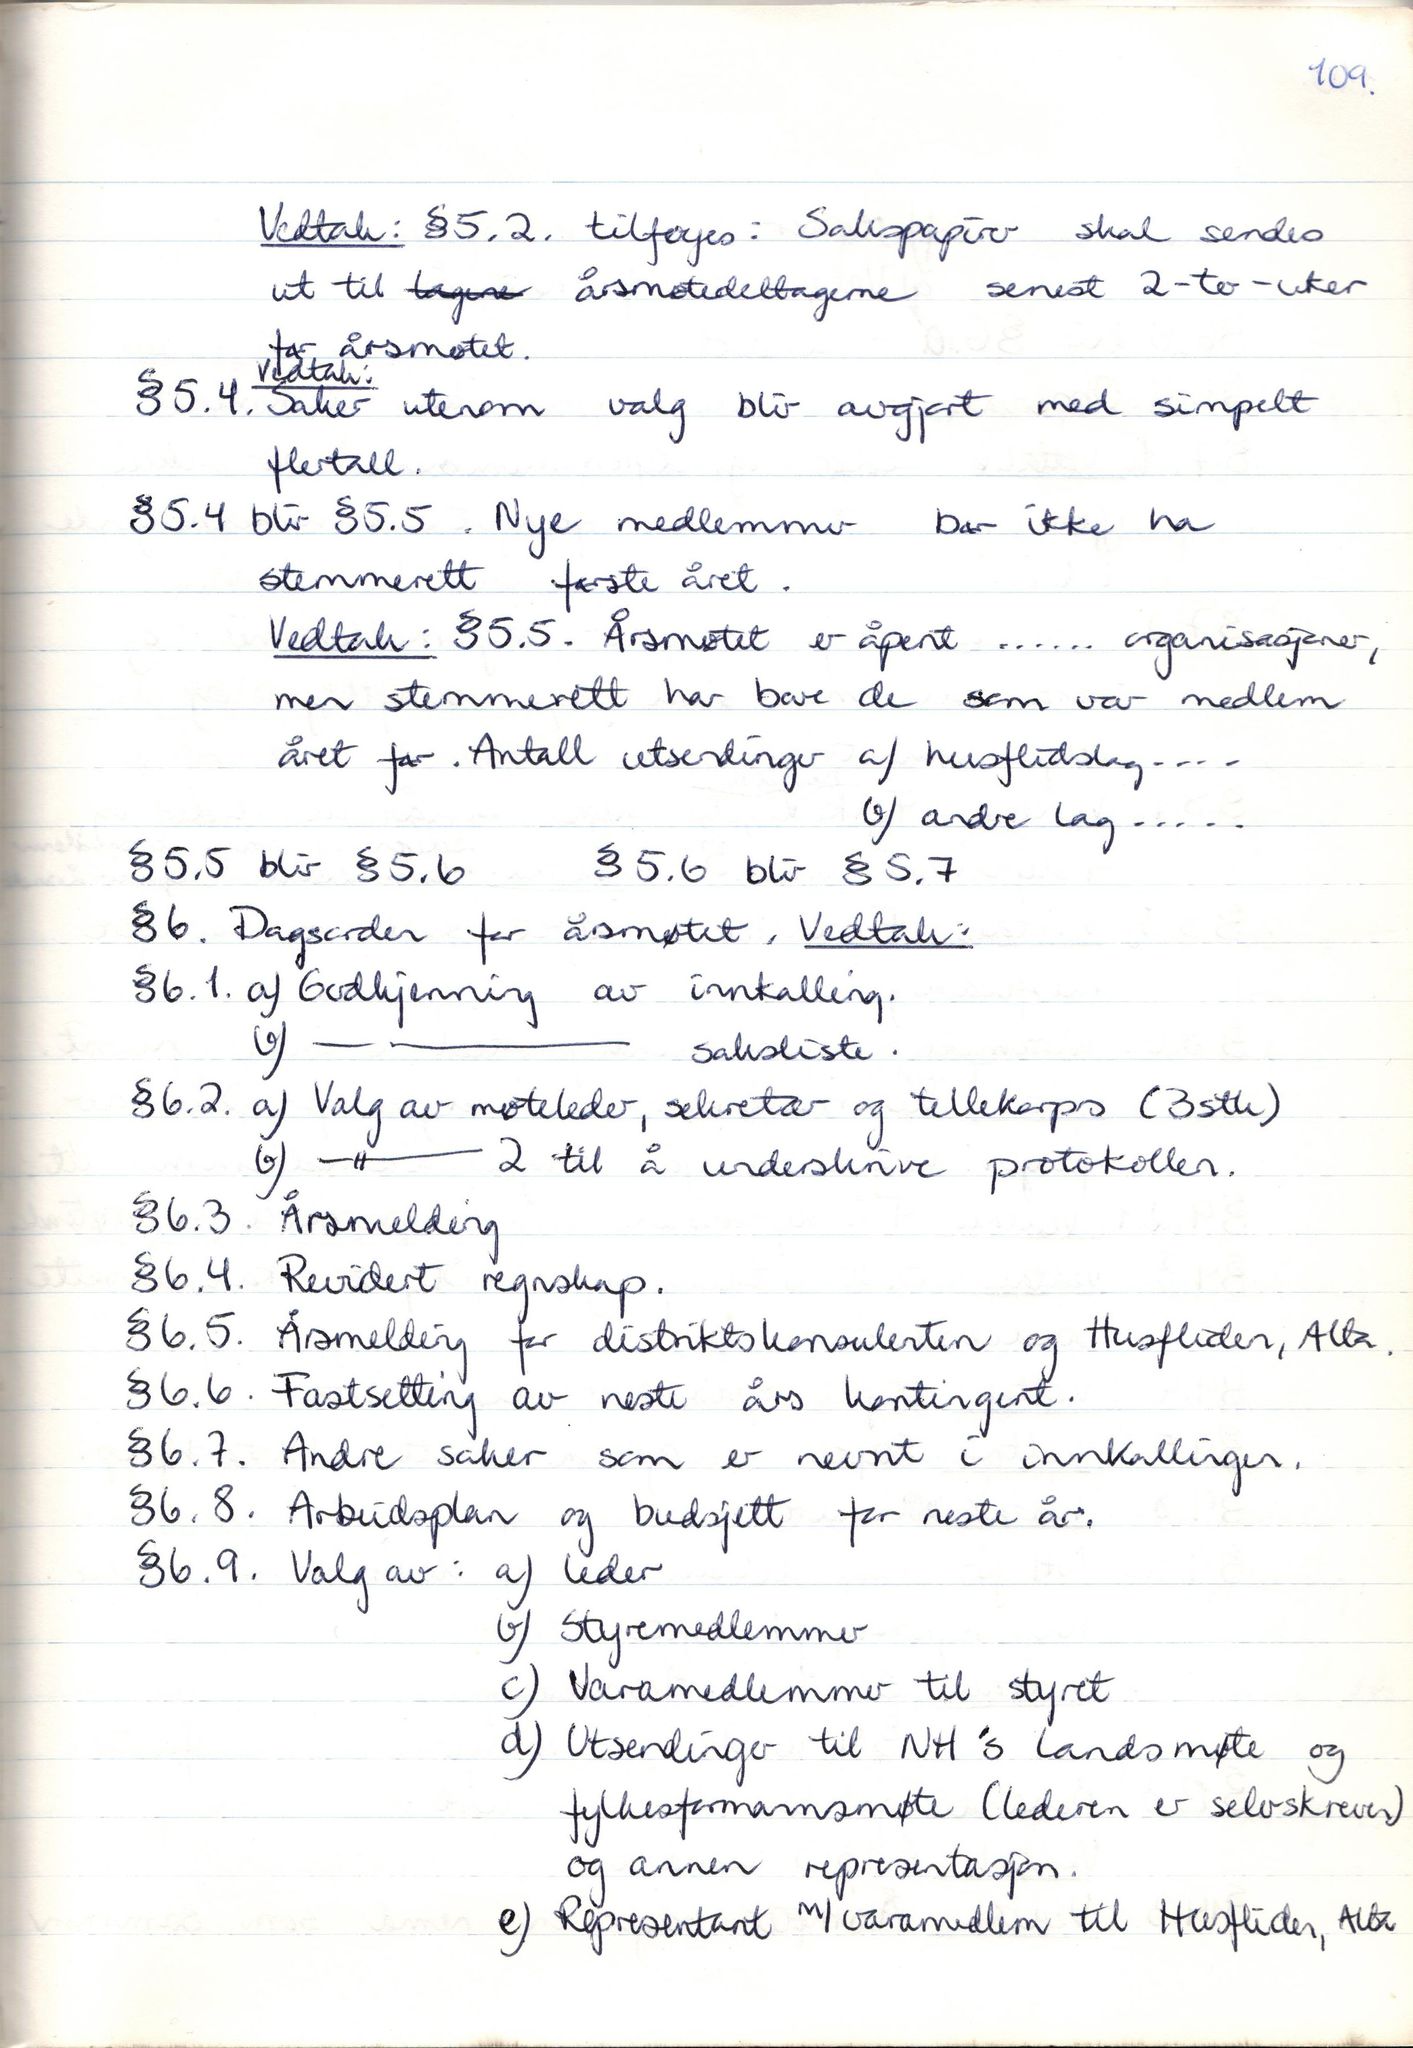 109.
Vedtak: §5.2. tilføyes: Sakspapirer skal sendes
ut til lagene årsmøtedeltagerne senest 2-to-uker
før årsmøtet.
Vedtak:
§5.4. Saker utenom valg blir avgjort med simpelt
flertall.
§5.4 blir §5.5. Nye medlemmer bør ikke ha
stemmerett første året.
Vedtak: §5.5. Årsmøtet er åpent ...... organisasjoner,
men stemmerett har bare de som var medlem
året før. Antall utsendinger a) husflidslag....
b) andre lag .....
§5.5 blir §5.6 §5.6 blir §5.7
§6. Dagsorden for årsmøtet. Vedtak:
§6.1. a) Godkjenning av innkalling.
b) — ——— saksliste.
§6.2. a) Valg av møteleder, sekretær og tellekorps (3stk)
b) —"— 2 til å underskrive protokollen.
§6.3. Årsmelding
§6.4. Revidert regnskap.
§6.5. Årsmelding for distriktskonsulenten og Husfliden, Alta.
§6.6. Fastsetting av neste års kontingent.
§6.7. Andre saker som er nevnt i innkallingen.
§6.8. Arbeidsplan og budsjett for neste år.
§6.9. Valg av: a) leder
b) Styremedlemmer
c) Varamedlemmer til styret
d) Utsendinger til NH's Landsmøte og
fylkesformannsmøte (lederen er selvskreven)
og annen representasjon.
e) Representant m/varamedlem til Husfliden, Alta